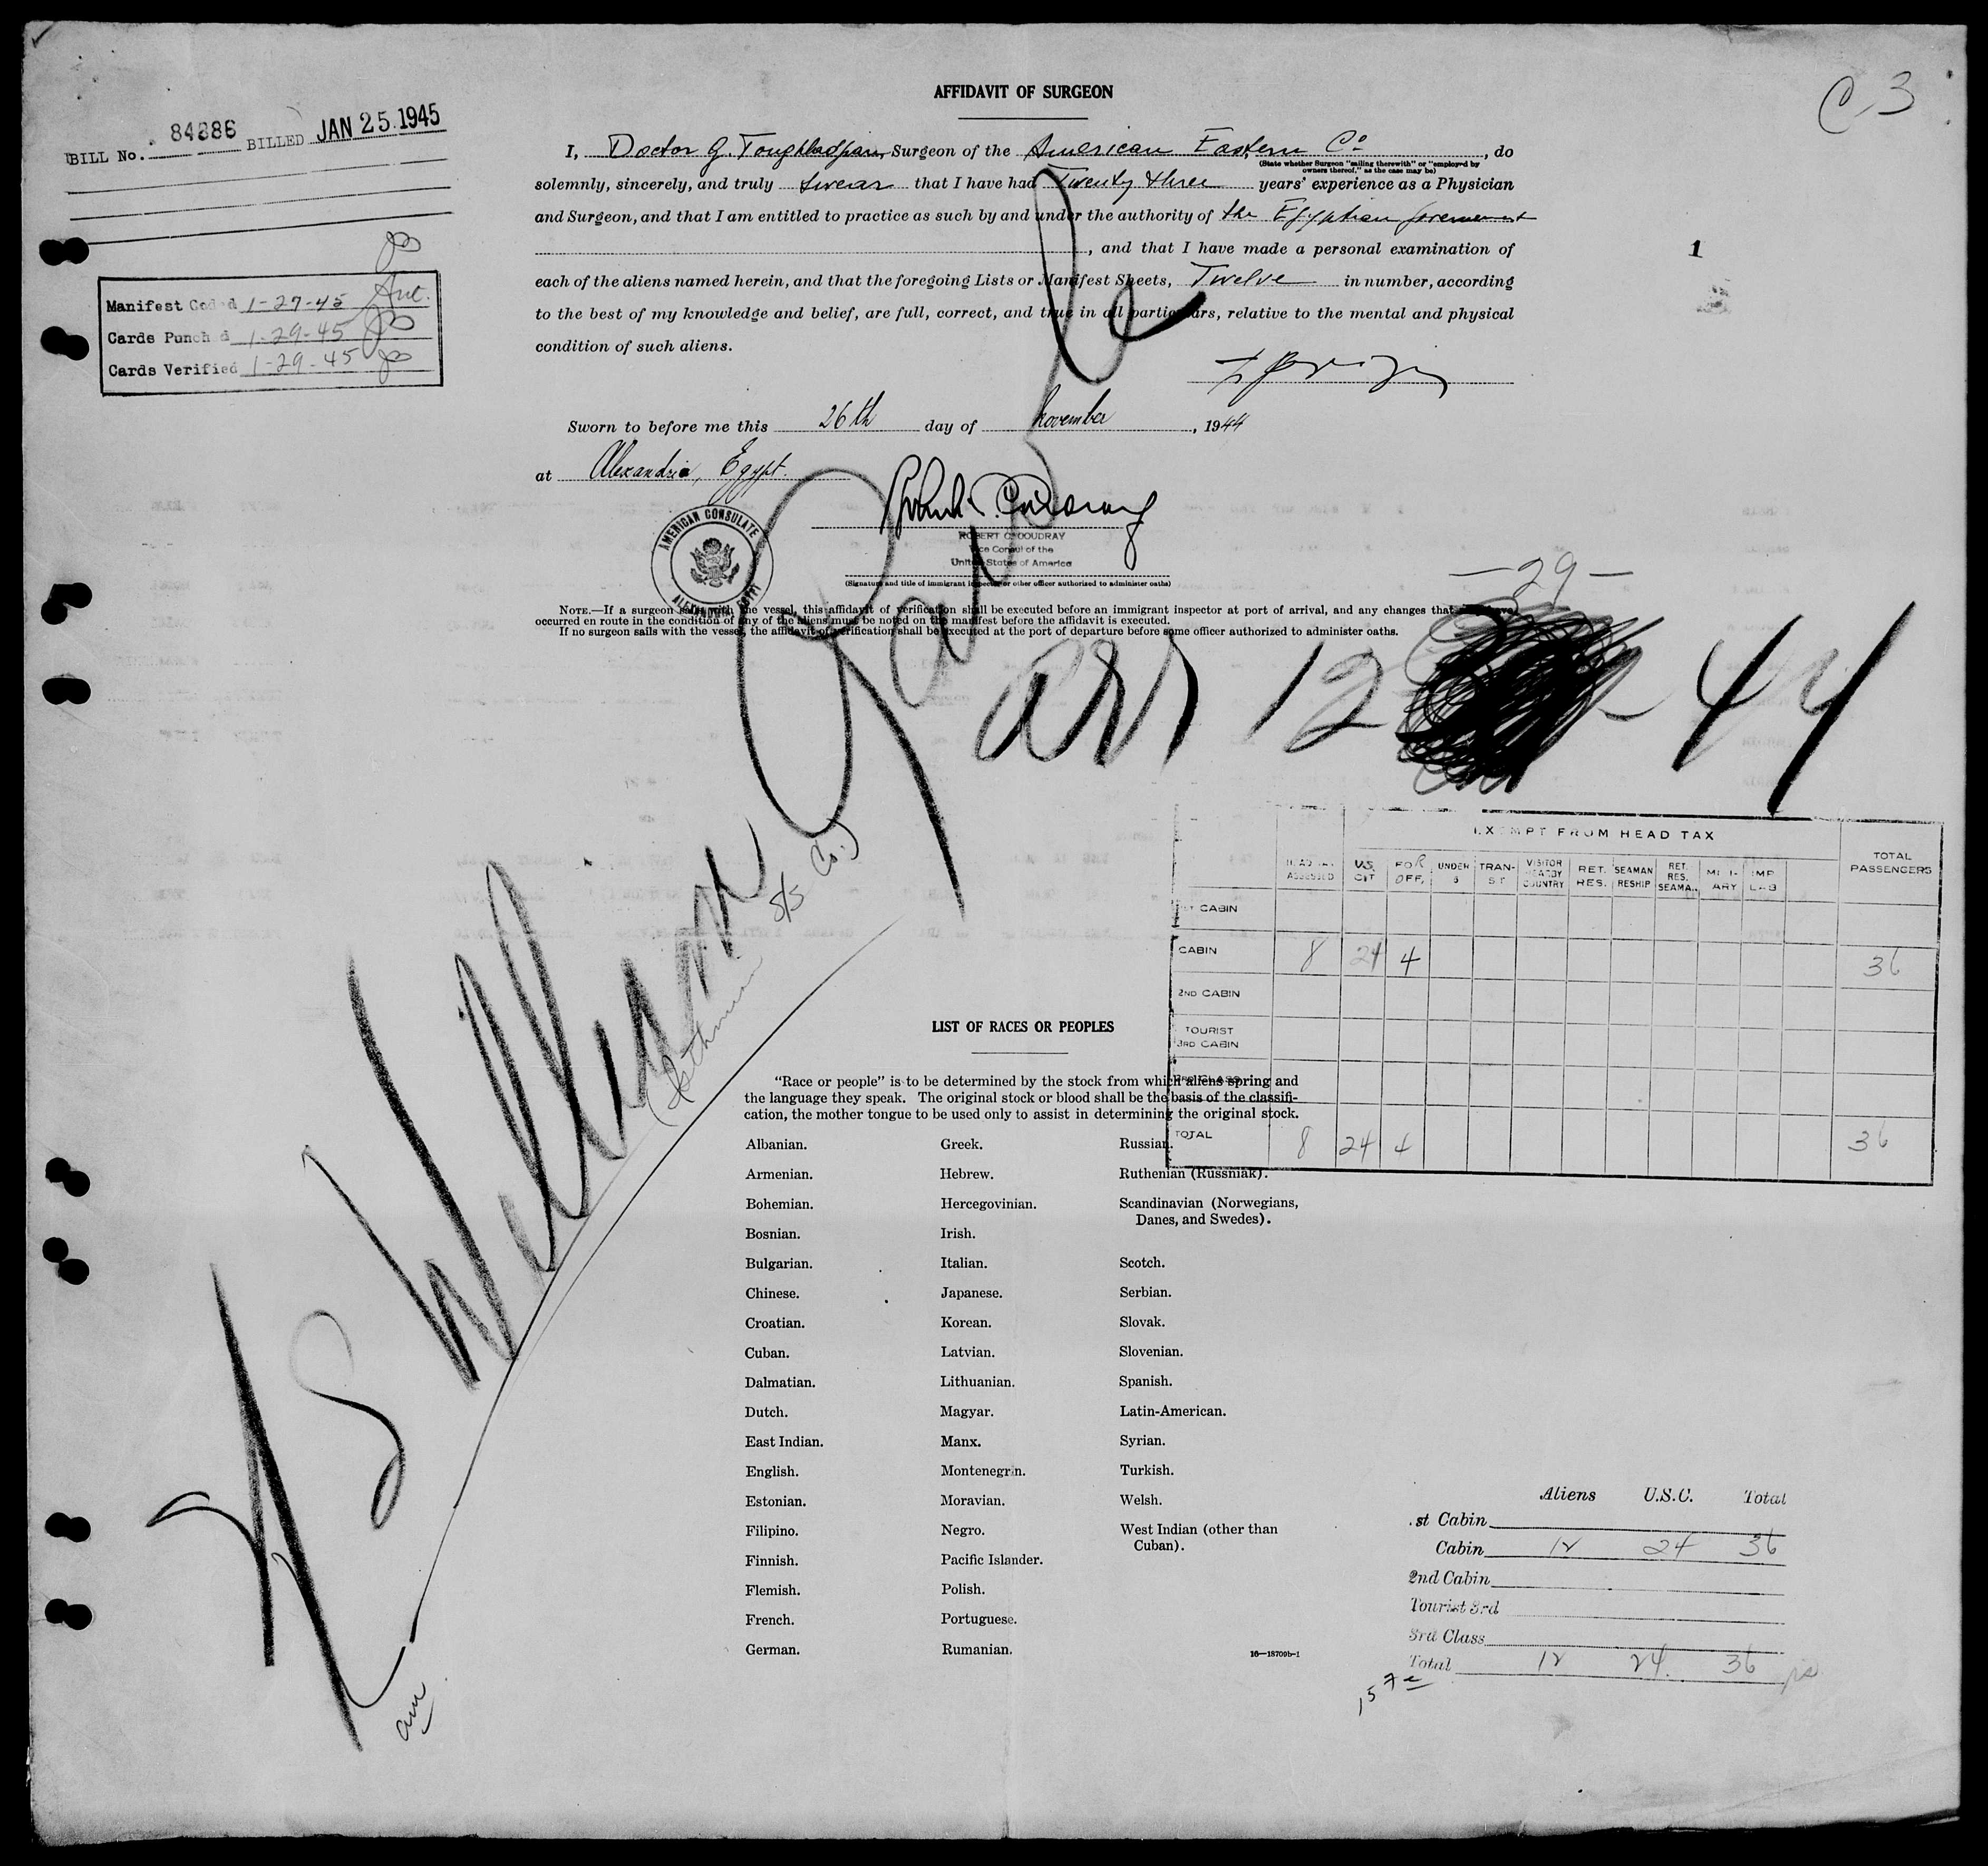 AFFIDAVIT OF SURGEON
C 3
84886
BILL No. BILLED JAN 25 1945
I, Doctor G. Toughladjian, Surgeon of the American Eastern Co, do
(State whether Surgeon "sailing therewith" or "employed by
owners thereof," as the case may be)
solemnly, sincerely, and truly swear that I have had Twenty three years' experience as a Physician
and Surgeon, and that I am entitled to practice as such by and under the authority of the Egyptian
, and that I have made a personal examination of
1
each of the aliens named herein, and that the foregoing Lists or Manifest Sheets, Twelve in number, according
to the best of my knowledge and belief, are full, correct, and true in all particulars, relative to the mental and physical
condition of such aliens.
Manifest Coded 1-27-45
Cards Punched 1-29-45
Cards Verified 1-29-45
Sworn to before me this 26th day of November, 1944
at Alexandria, Egypt.
AMERICAN CONSULATE
ALEXANDRIA, EGYPT
ROBERT C. COUDRAY
Vice Consul of the
United States of America
(Signature and title of immigrant inspector or other officer authorized to administer oaths)
NOTE.—If a surgeon sails with the vessel, this affidavit of verification shall be executed before an immigrant inspector at port of arrival, and any changes that have
occurred en route in the condition of any of the aliens must be noted on the manifest before the affidavit is executed.
If no surgeon sails with the vessel, the affidavit of verification shall be executed at the port of departure before some officer authorized to administer oaths.
-29-
arr 12 - 44
(Isthmian S/S Co.)
EXEMPT FROM HEAD TAX
HEAD TAX ASSESSED
U.S. CIT
FOR OFF.
UNDER
TRANSIT
VISITOR NEARBY COUNTRY
RET. RES.
SEAMAN RESHIP
RET. RES. SEAMAN
MILITARY
IMP LAB
TOTAL PASSENGERS
1ST CABIN
CABIN 8 24 4 36
2ND CABIN
TOURIST 3RD CABIN
3RD CLASS
TOTAL 8 24 4 36
LIST OF RACES OR PEOPLES
"Race or people" is to be determined by the stock from which aliens spring and
the language they speak. The original stock or blood shall be the basis of the classifi-
cation, the mother tongue to be used only to assist in determining the original stock.
Albanian. Greek. Russian.
Armenian. Hebrew. Ruthenian (Russniak).
Bohemian. Hercegovinian. Scandinavian (Norwegians,
Danes, and Swedes).
Bosnian. Irish.
Bulgarian. Italian. Scotch.
Chinese. Japanese. Serbian.
Croatian. Korean. Slovak.
Cuban. Latvian. Slovenian.
Dalmatian. Lithuanian. Spanish.
Dutch. Magyar. Latin-American.
East Indian. Manx. Syrian.
English. Montenegrin. Turkish.
Estonian. Moravian. Welsh.
Filipino. Negro. West Indian (other than
Cuban).
Finnish. Pacific Islander.
Flemish. Polish.
French. Portuguese.
German. Rumanian.
16—18709b-1
Aliens U.S.C. Total
1st Cabin
Cabin 12 24 36
2nd Cabin
Tourist 3rd
3rd Class
Total 12 24 36
am